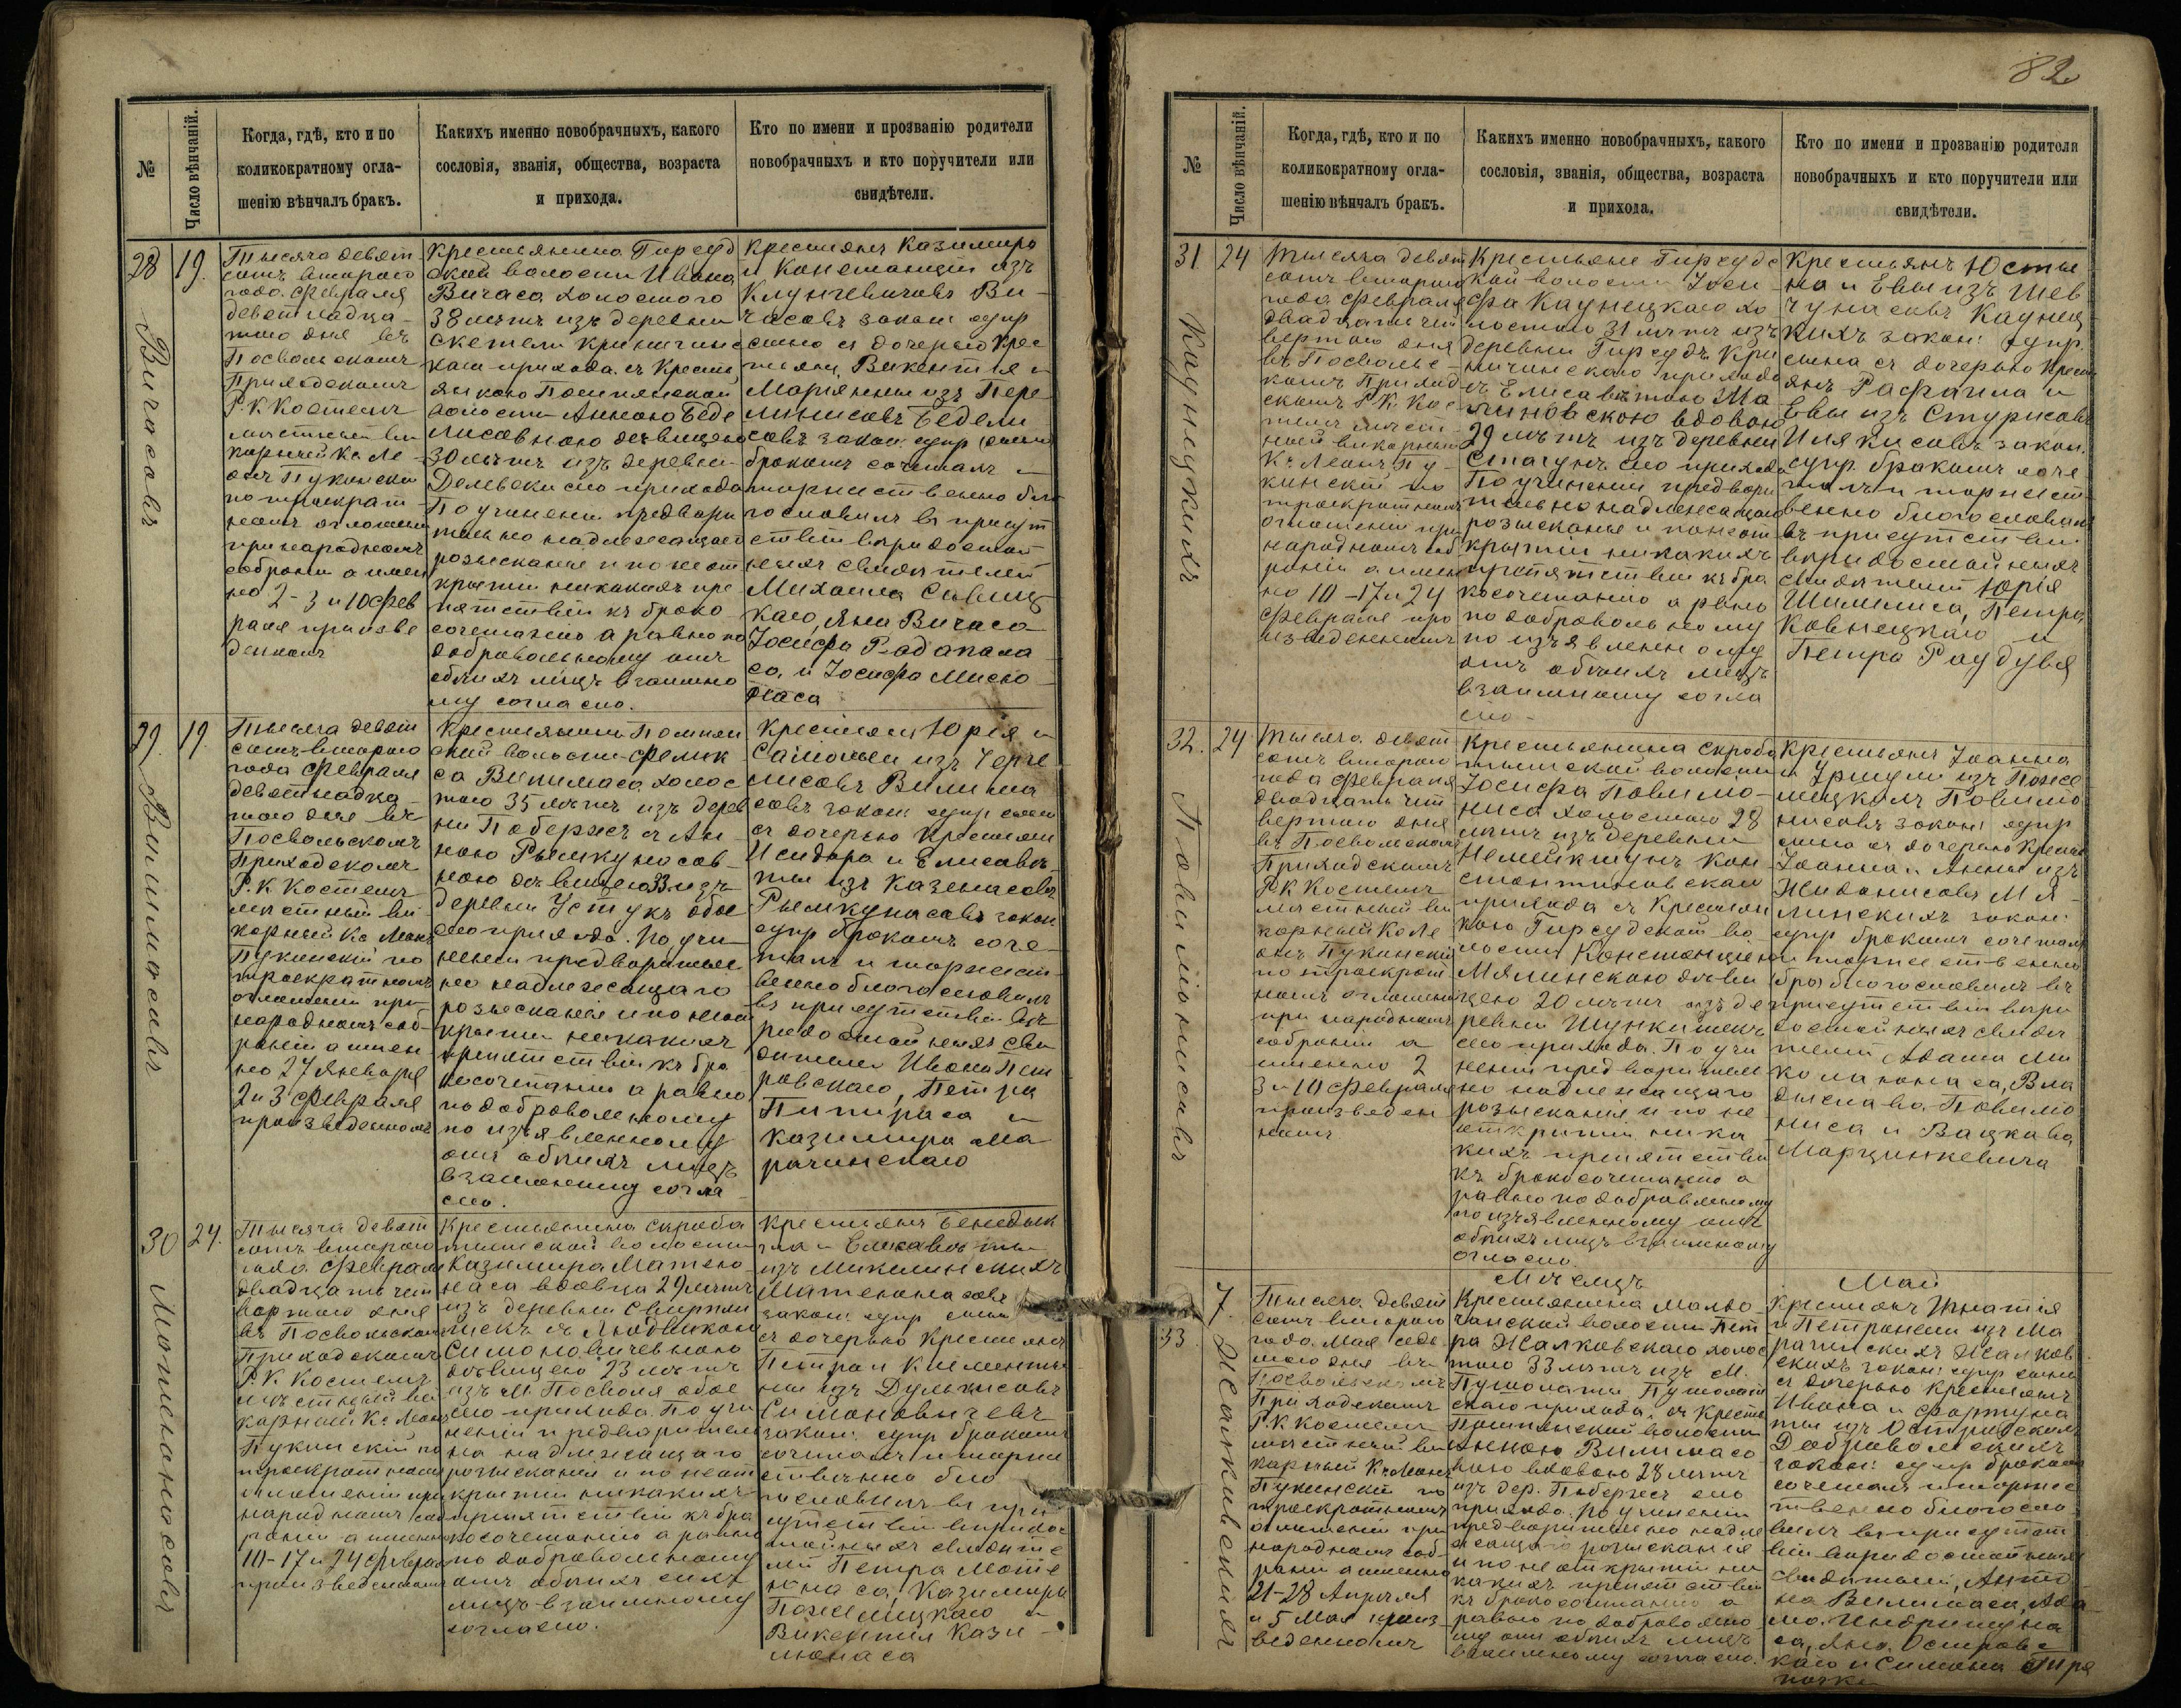 82
№
Число вѣнчаній.
Когда, гдѣ, кто и по
коликократному огла-
шенію вѣнчалъ бракъ.
Какихъ именно новобрачныхъ, какого
сословія, званія, общества, возраста
и прихода.
Кто по имени и прозванію родители
новобрачныхъ и кто поручители или
свидѣтели.
28
19.
Вичасовъ
Тысяча девят
сотъ второго
года Февраля
девятнадца-
таго дня въ
Посвольскомъ
Приходскомъ
Р. К. Костелѣ
мѣстный ви
карный Кс. Ле-
онъ Пукински
по троекрат-
номъ оглашени
при народномъ
собрании а имен
но 2-3 и 10 Фев
раля произве
денномъ
Крестьянина Гирсуд
ской волости Ивана
Вичаса холостого
38 лѣтъ изъ деревни
Скетели Криничинс
каго прихода съ Крестьян
янкою Помпянской
волости Анною Беде
лисовною дѣвицею
30 лѣтъ изъ деревни
Делевски сего прихода
По учинени предвари
тельно надлежащаго
розысканiя и по неот
крытiи никакихъ пре
пятствiй къ брако
сочетанiю а равно по
добровольному отъ
обоихъ лицъ взаимно
му согласiю.
Крестьянъ Казимира
и Констанцiи изъ
Клунгевичовъ Ви-
часовъ закон: супр
сына съ дочерью Крес
тьянъ Викентiя и
Марiянны изъ Пере
линисовъ Бедели
совъ закон: супр
бракомъ сочеталъ и
торжественно бла
гословилъ въ присут
ствiи вѣридостой
ныхъ свидѣтелей
Михаила Савиц
каго, Яна Вичаса
Iосифа Радапала
са, и Iосифа Мисю
наса
29
19.
Вилимасовъ
Тысяча девят
сотъ второго
года Февраля
девятнадца-
таго дня въ
Посвольскомъ
Приходскомъ
Р. К. Костелѣ
мѣстный ви
карный Кс. Леонъ
Пукинскiй по
троекратномъ
оглашени при
народномъ соб-
ранiи а имен
но 27 Января
2 и 3 Февраля
произведенномъ
Крестьянина Помпян
ской волости Феликс
са Вилимаса холос
таго 35 лѣтъ изъ дерев
ни Побержъ съ Ан-
ною Рымкунасов-
ною дѣвицею 33 изъ
деревни Устукъ обое
сего прихода. По учи-
ненiи предварительно
надлежащаго
розысканiя и по неот
крытiи никакихъ
препятствiй къ бра
косочетанiю а равно
по добровольному
по изъявленному
отъ обоихъ лицъ
взаимному согла
сiю.
Крестьянъ Юрiя и
Саломеи изъ Черге
лисовъ Вилима
совъ закон: супр сына
съ дочерью Крестьян
Исидора и Елисаве
ты изъ Казенасовъ
Рымкунасовъ закон:
супр бракомъ соче-
талъ и торжест-
венно благословилъ
въ присутствiи вѣ
ридостойныхъ сви
дѣтелей Ивана Пет
ровскаго, Петра
Питираса и
Казимира Ма
рачинскаго
30
24.
Матенонасовъ
Тысяча девят
сотъ второго
года Февраля
двадцать чет
вертаго дня
въ Посвольском
Приходскомъ
Р. К. Костелѣ
мѣстный ви
карный Кс. Леонъ
Пукинскiй по
троекратномъ
оглашенiи при
народномъ соб
ранiи а именно
10-17 и 24 Февраля
произведенномъ
Крестьянина Скроба
тышской волости
Казимира Матено-
наса вдовца 29 лѣтъ
изъ деревни Свирпли
шекъ съ Людвикою
Симоновичевною
дѣвицею 23 лѣтъ
изъ м. Посволя обое
сего прихода. По учи
ненiи предварительно
надлежащаго
розысканiя и по неот
крытiи никакихъ
препятствiй къ бра
косочетанiю а равно
по добровольному
отъ обоихъ сихъ
лицъ взаимному
согласiю.
Крестьянъ Бенедик
та и Елисаветы
изъ Микелинскихъ
Матенонасовъ
закон: супр сына
съ дочерью Крестьянъ
Петра и Клементы
ни изъ Дулькисовъ
Симоновичевъ
закон: супр бракомъ
сочеталъ и торже
ственно бла
гословилъ въ при
сутствiи вѣридос
тойныхъ свидѣте
лей Петра Мате
нонаса, Казимира
Пожемецкаго и
Викентiя Кази-
монаса
№
Число вѣнчаній.
Когда, гдѣ, кто и по
коликократному огла-
шенію вѣнчалъ бракъ.
Какихъ именно новобрачныхъ, какого
сословія, званія, общества, возраста
и прихода.
Кто по имени и прозванію родители
новобрачныхъ и кто поручители или
свидѣтели.
31
24
Каунецкихъ
Тысяча девят
сотъ второго
года Февраля
двадцать чет
вертаго дня
въ Посволь-
скомъ Приход
скомъ Р. К. Кос
телѣ мѣст-
ный викарный
Кс. Леонъ Пу-
кинскiй по
троекратномъ
оглашенiи при
народномъ соб
ранiи а имен
но 10-17 и 24
Февраля про
изведенномъ
Крестьяне Гирсудс
кой волости Iоси-
фа Каунецкаго хо
лостаго 31 лѣтъ изъ
деревни Гирсудъ Кри
ничинскаго прихода
съ Елисаветою Ма
линовскою вдовою
29 лѣтъ изъ деревни
Стагунъ сего прихода
По учиненiи предвари
тельно надлежащаго
розысканiя и по неот
крытiи никакихъ
препятствiй къ бра
косочетанiю а равно
по добровольному
по изъявленному
отъ обоихъ лицъ
взаимному согла
сiю-
Крестьянъ Юсты
на и Евы изъ Шев
чунасовъ Каунец
кихъ закон: супр.
сына съ дочерью Крест
янъ Рафаила и
Евы изъ Стурисовъ
Илякисовъ закон.
супр. бракомъ соче
талъ и торжест
венно благословилъ
въ присутствiи
вѣридостойныхъ
свидѣтелей Юрiя
Шимелиса, Петра
Ковнецкаго и
Петра Раудувя
32.
24
Повилонисовъ
Тысяча девят
сотъ второго
года Февраля
двадцать чет
вертаго дня
въ Посвольскомъ
Приходскомъ
Р. К. Костелѣ
мѣстный ви
карный Кс Ле
онъ Пукинскiй
по троекрат
номъ оглашени
при народномъ
собранiи а
именно 2
3 и 10 Февраля
произведен
номъ
Крестьянина Скроба
тышской волости
Iосифа Повило-
ниса холостаго 28
лѣтъ изъ деревни
Немейкшунъ Кон
стантиновскаго
прихода съ Крестьян
кою Гирсудской во
лости Констанцiею
Мялинскою дѣви
цею 20 лѣтъ изъ де
ревни Шункишекъ
сего прихода. По учи
ненiи предварительно
надлежащаго
розысканiя и по не
открытiи ника
кихъ препятствiй
къ бракосочетанiю а
равно по добровольному
по изъявленному отъ
обоихъ лицъ взаимному
согласiю.
Крестьянъ Iоанна
и Уршули изъ Поже
мецкихъ Повило
нисовъ закон: супр
сына съ дочерью Крестья
Iоанна и Анны изъ
Жидонисовъ Мя
линскихъ закон:
супр бракомъ сочеталъ
и торжественно
благословилъ въ
присутствiи вѣри
достойныхъ свидѣ
телей Адама Ми
колаюнаса, Вла
дыслава Повило
ниса и Вацкава
Марцинкевича
Мѣсяцъ
Май
33
7.
Жалковскихъ
Тысяча девят
сотъ второго
года Мая седь
маго дня въ
Посвольскомъ
Приходскомъ
Р. К. Костелѣ
мѣстный ви
карный Кс Леонъ
Пукинскiй по
троекратномъ
оглашенiи при
народномъ соб-
ранiи а именно
21-28 Апрѣля
и 5 Мая произ
веденномъ
Крестьянина Малю-
чанской волости Пет
ра Жалковскаго холос
таго 33 лѣтъ изъ М.
Пумолаты Пумолат
скаго прихода, съ Кресть
Помпянской волости
Анною Вилимасо
вою вдовою 28 лѣтъ
изъ дер. Побержъ сего
прихода. По учиненiи
предварительно надле
жащаго розысканiя
и по не открытiи ни
какихъ препятствiй
къ бракосочетанiю а
равно по доброволно
му отъ обоихъ лицъ
взаимному согласiю.
Крестьянъ Игнатiя
и Петронели изъ Ма
рачинскихъ Жалков
скихъ закон: супр сына
съ дочерью Крестьянъ
Ивана и Фортуна
ты изъ Островскихъ
Добровольскихъ
закон: супр бракомъ
сочеталъ и торжес
твенно благосло
вилъ въ присутст
вiи вѣридостойныхъ
свидѣтелей, Анто
на Вилимаса, Ада
ма Индришуна
са, Яна Островс
каго и Симона